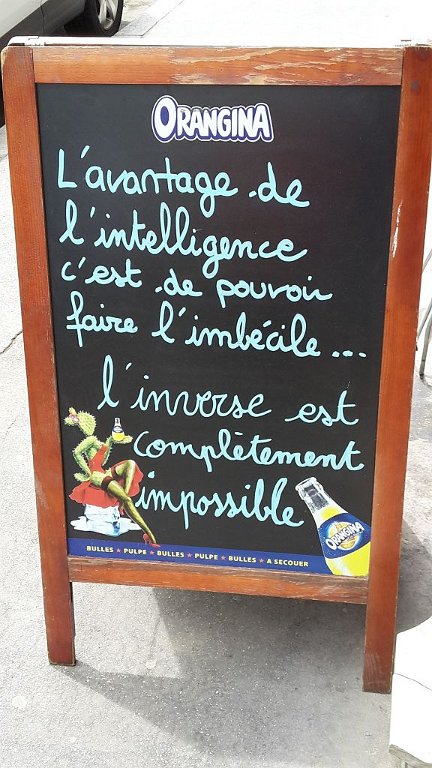 ORANGINA
L'avantage de
l'intelligence
c'est de pouvoir
faire l'imbécile...
l'inverse est
complètement
impossible
ORANGINA
BULLES ★ PULPE ★ BULLES ★ PULPE ★ BULLES ★ A SECOUER